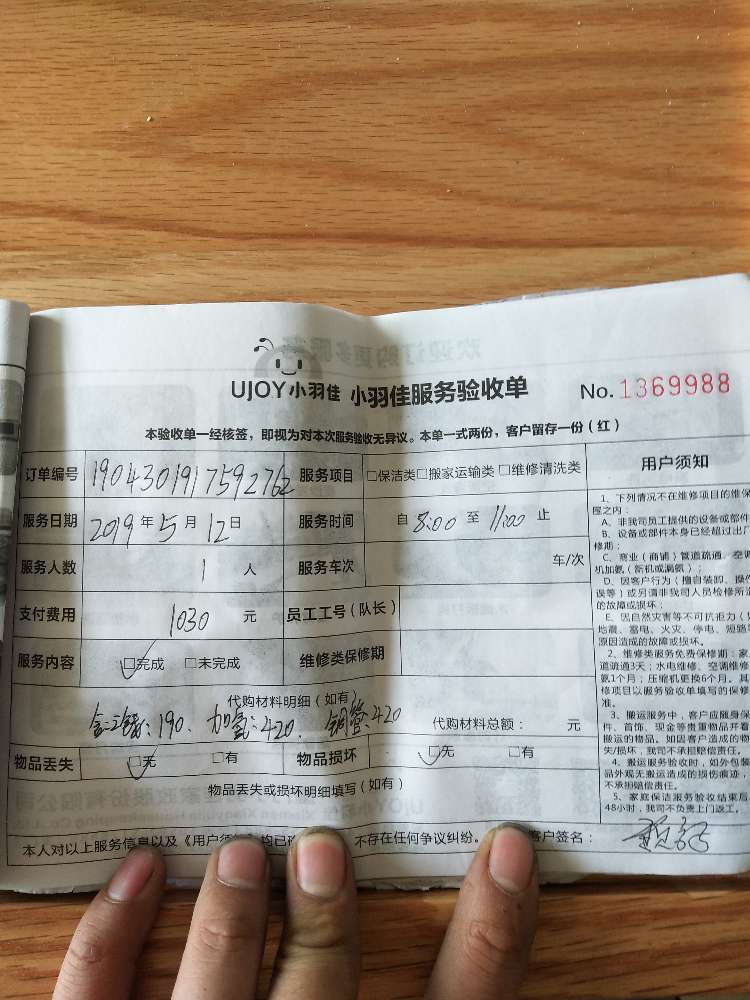 UJOY小羽佳 小羽佳服务验收单 No.1369988
本验收单一经核签，即视为对本次服务验收无异议。本单一式两份，客户留存一份（红）
订单编号 1904301917592762 服务项目 □保洁类□搬家运输类□维修清洗类 用户须知
服务日期 2019年5月12日 服务时间 自 8:00 至 11:00 止
服务人数 1 人 服务车次 车/次
支付费用 1030 元 员工工号（队长）
服务内容 ☑完成 □未完成 维修类保修期
代购材料明细（如有）
190、加氢:420、铜管:420 代购材料总额： 元
物品丢失 ☑无 □有 物品损坏 ☑无 □有
物品丢失或损坏明细填写（如有）
本人对以上服务信息以及《用户须 均已 不存在任何争议纠纷。 客户签名：
1、下列情况不在维修项目的维保
围之内：
A、非我司员工提供的设备或部件
B、设备或部件本身已经超过出厂
修期；
C、商业（商铺）管道疏通、空调
机加氨（新机或漏氨）；
D、因客户行为（擅自装卸、操作
误等）或另请非我司人员检修所造
的故障或损坏；
E、因自然灾害等不可抗拒力（
地震、雷电、火灾、停电、短路
原因造成的故障或损坏。
2、维修类服务免费保修期：家
道疏通3天；水电维修、空调维
氨1个月；压缩机更换6个月。其
修项目以服务验收单填写的保修
准。
3、搬运服务中，客户应随身保
件、首饰、现金等贵重物品并看
搬运的物品。如因客户造成的物
失/损坏，我司不承担赔偿责任。
4、搬运服务验收时，如外包装
品外观无搬运造成的损伤痕迹，
不承担赔偿责任。
5、家庭保洁服务验收结束后
48小时，我司不负责上门返工。